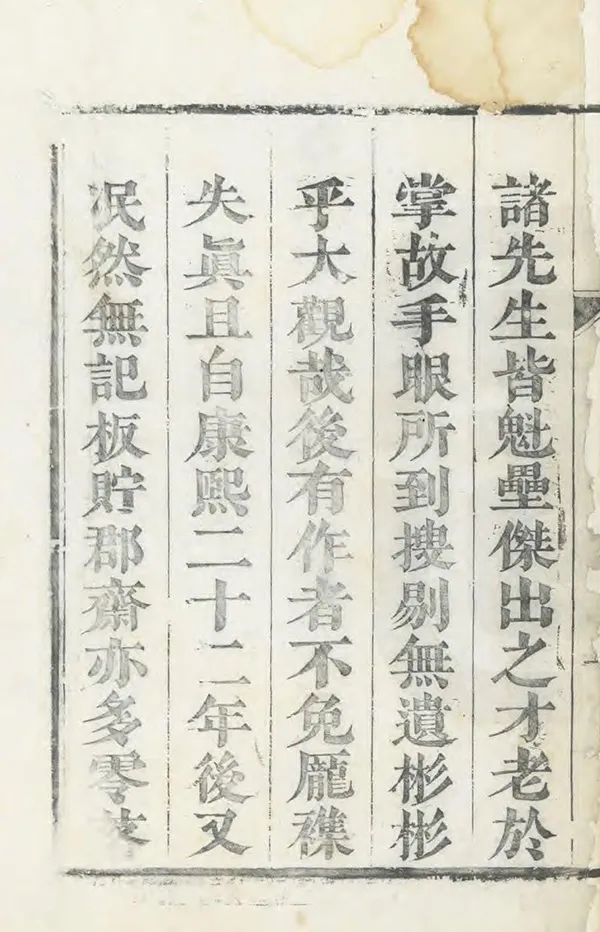 諸先生皆魁壘傑出之才老於
掌故手眼所到搜剔無遺彬彬
乎大觀哉後有作者不免厖襍
失眞且自康熙二十二年後又
泯然無記板貯郡齋亦多零